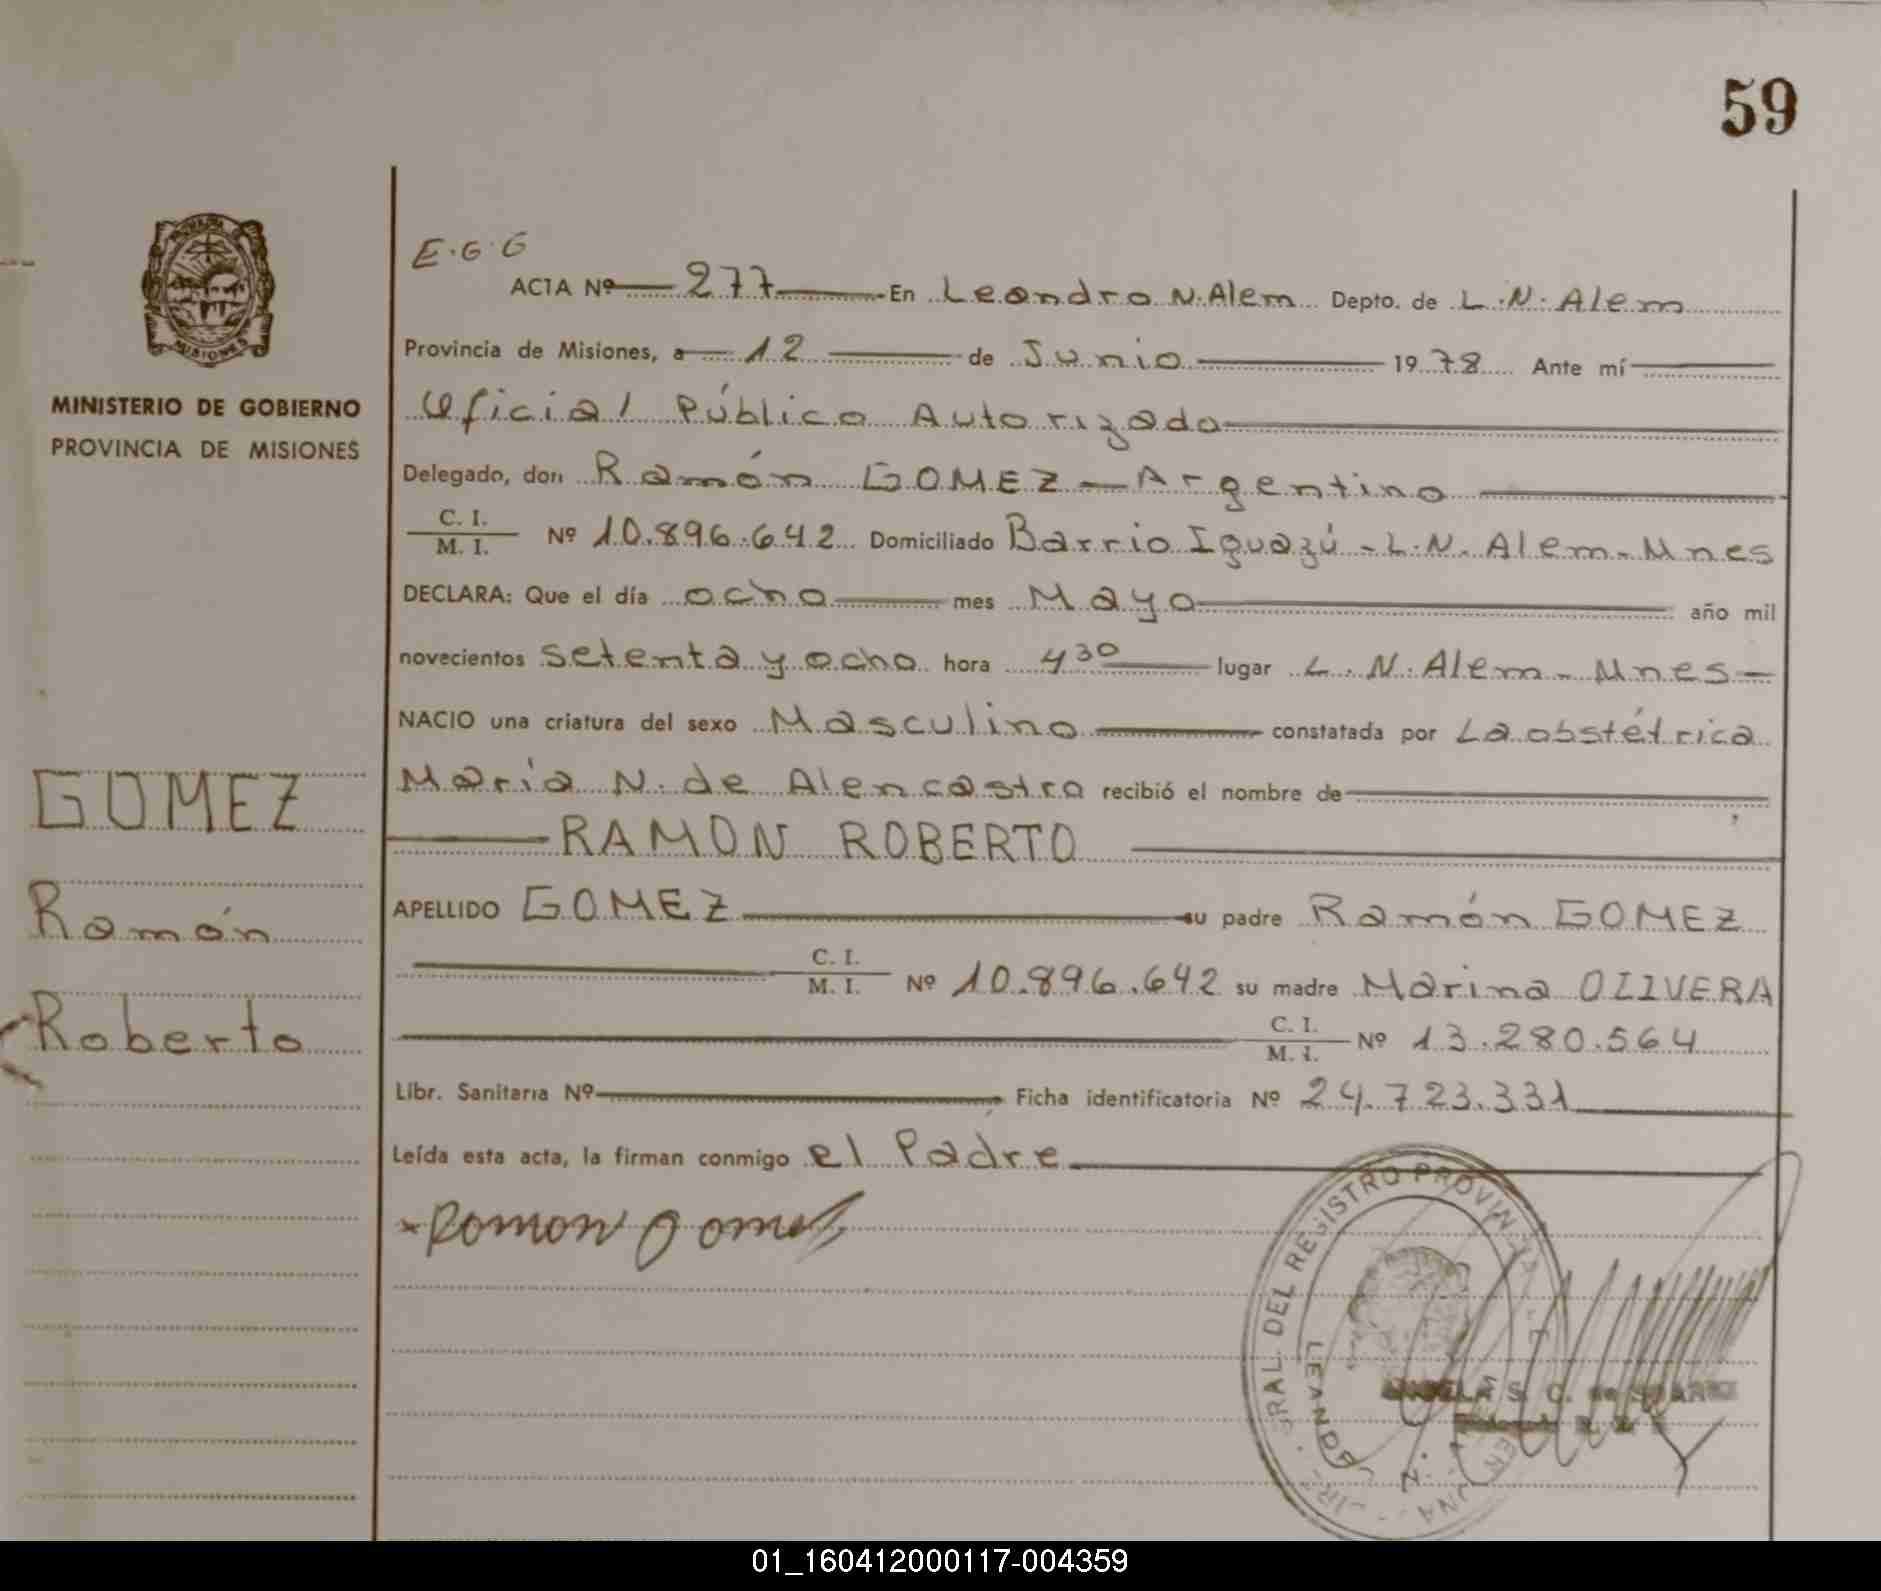 59
E.G.G
ACTA Nº 277 En Leandro N. Alem Depto. de L. N. Alem
Provincia de Misiones, a 12 de Junio 1978 Ante mí
MINISTERIO DE GOBIERNO
PROVINCIA DE MISIONES
Oficial Público Autorizado
Delegado, don Ramón GOMEZ - Argentino
C. I. / M. I. Nº 10.896.642 Domiciliado Barrio Iguazú - L. N. Alem - Mnes
DECLARA: Que el día ocho mes Mayo año mil
novecientos setenta y ocho hora 4 30 lugar L. N. Alem - Mnes -
NACIO una criatura del sexo Masculino constatada por La obstétrica
María N. de Alencastro recibió el nombre de
RAMON ROBERTO
GOMEZ
Ramón
Roberto
APELLIDO GOMEZ su padre Ramón GOMEZ
C. I. / M. I. Nº 10.896.642 su madre Marina OLIVERA
C. I. / M. I. Nº 13.280.564
Libr. Sanitaria Nº Ficha identificatoria Nº 24.723.331
Leída esta acta, la firman conmigo el Padre
Ramon Gomez
RAL DEL REGISTRO PROVIN
LEANDR N.
S. C. de SUAREZ
MISIONES
01_160412000117-004359